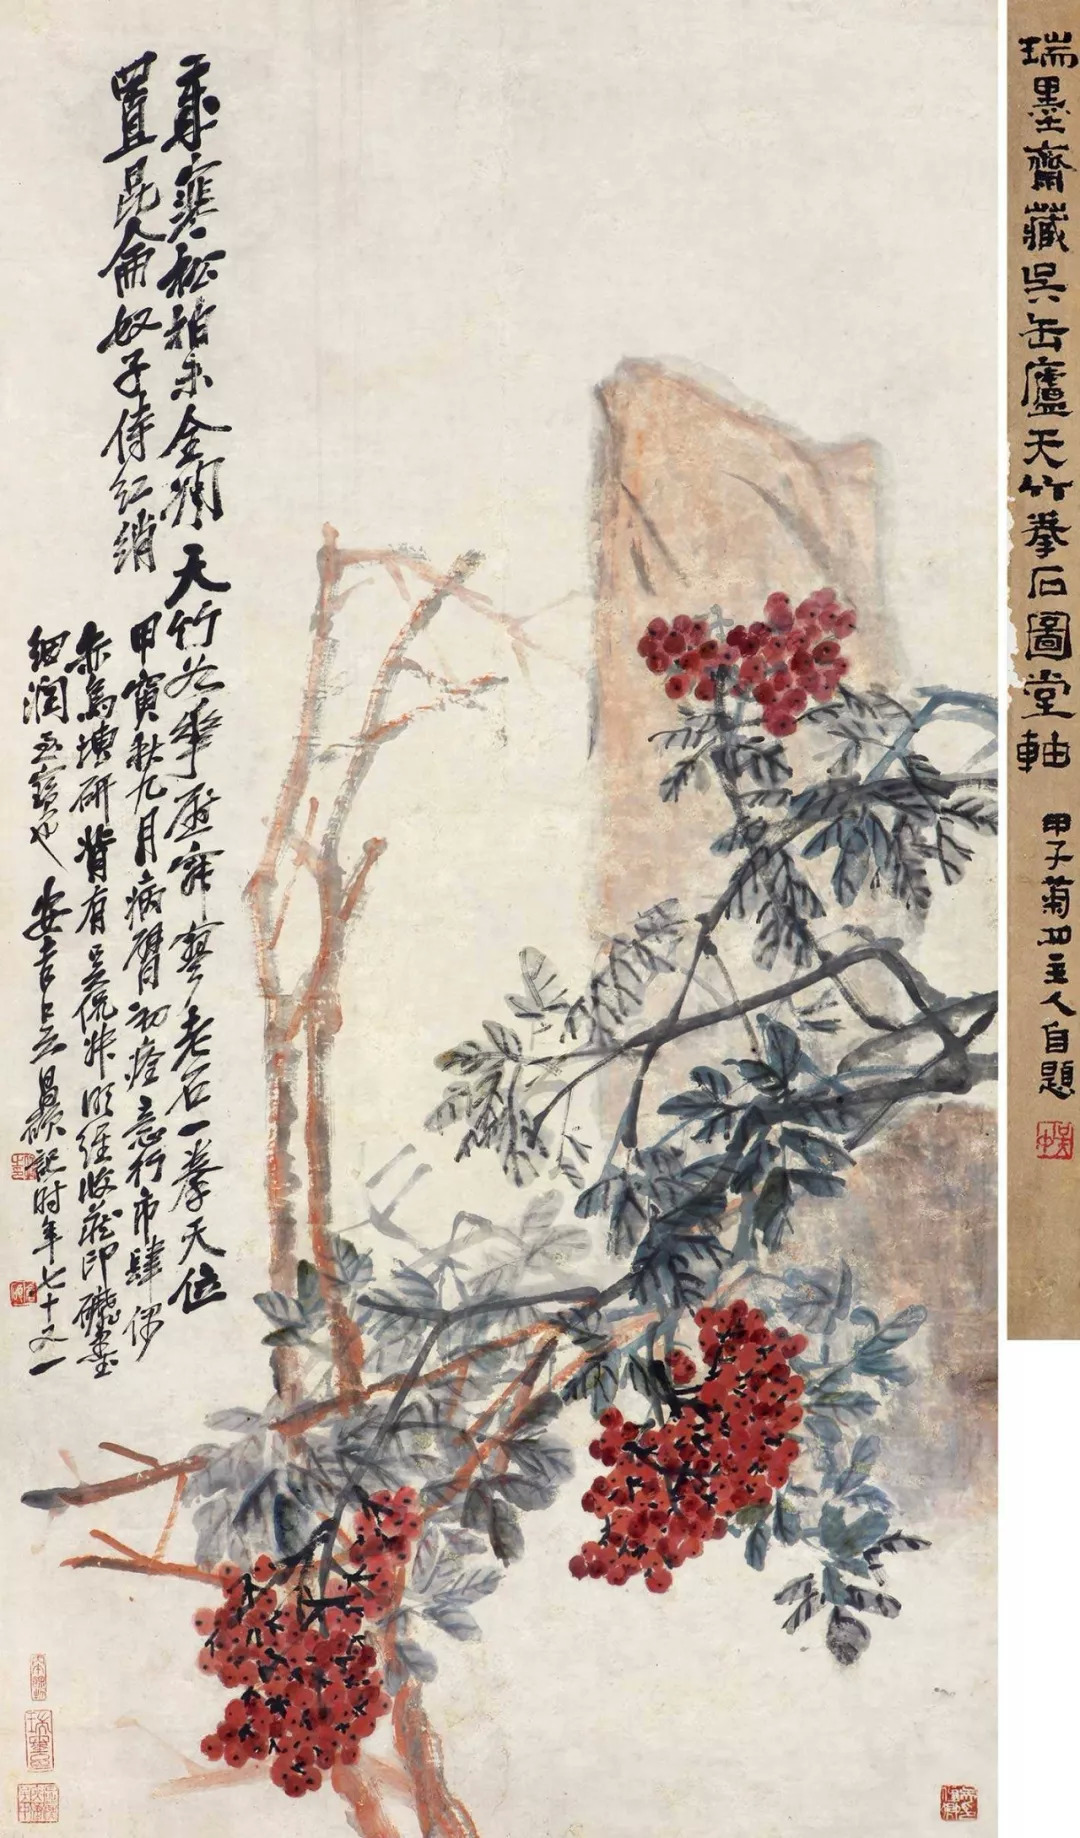 瑞墨齋藏吳缶廬天竹拳石圖堂軸
甲子菊主人自題
歲寒松柏未全凋天竹著華壓寂寥老石一拳天位
置昆侖奴子侍紅綃
甲寅秋九月病臂初痊意行市肆偶
赤烏塼研背有吳侃叔明經收藏印礲墨
細潤至寶也 安吉吳昌碩記時年七十又一